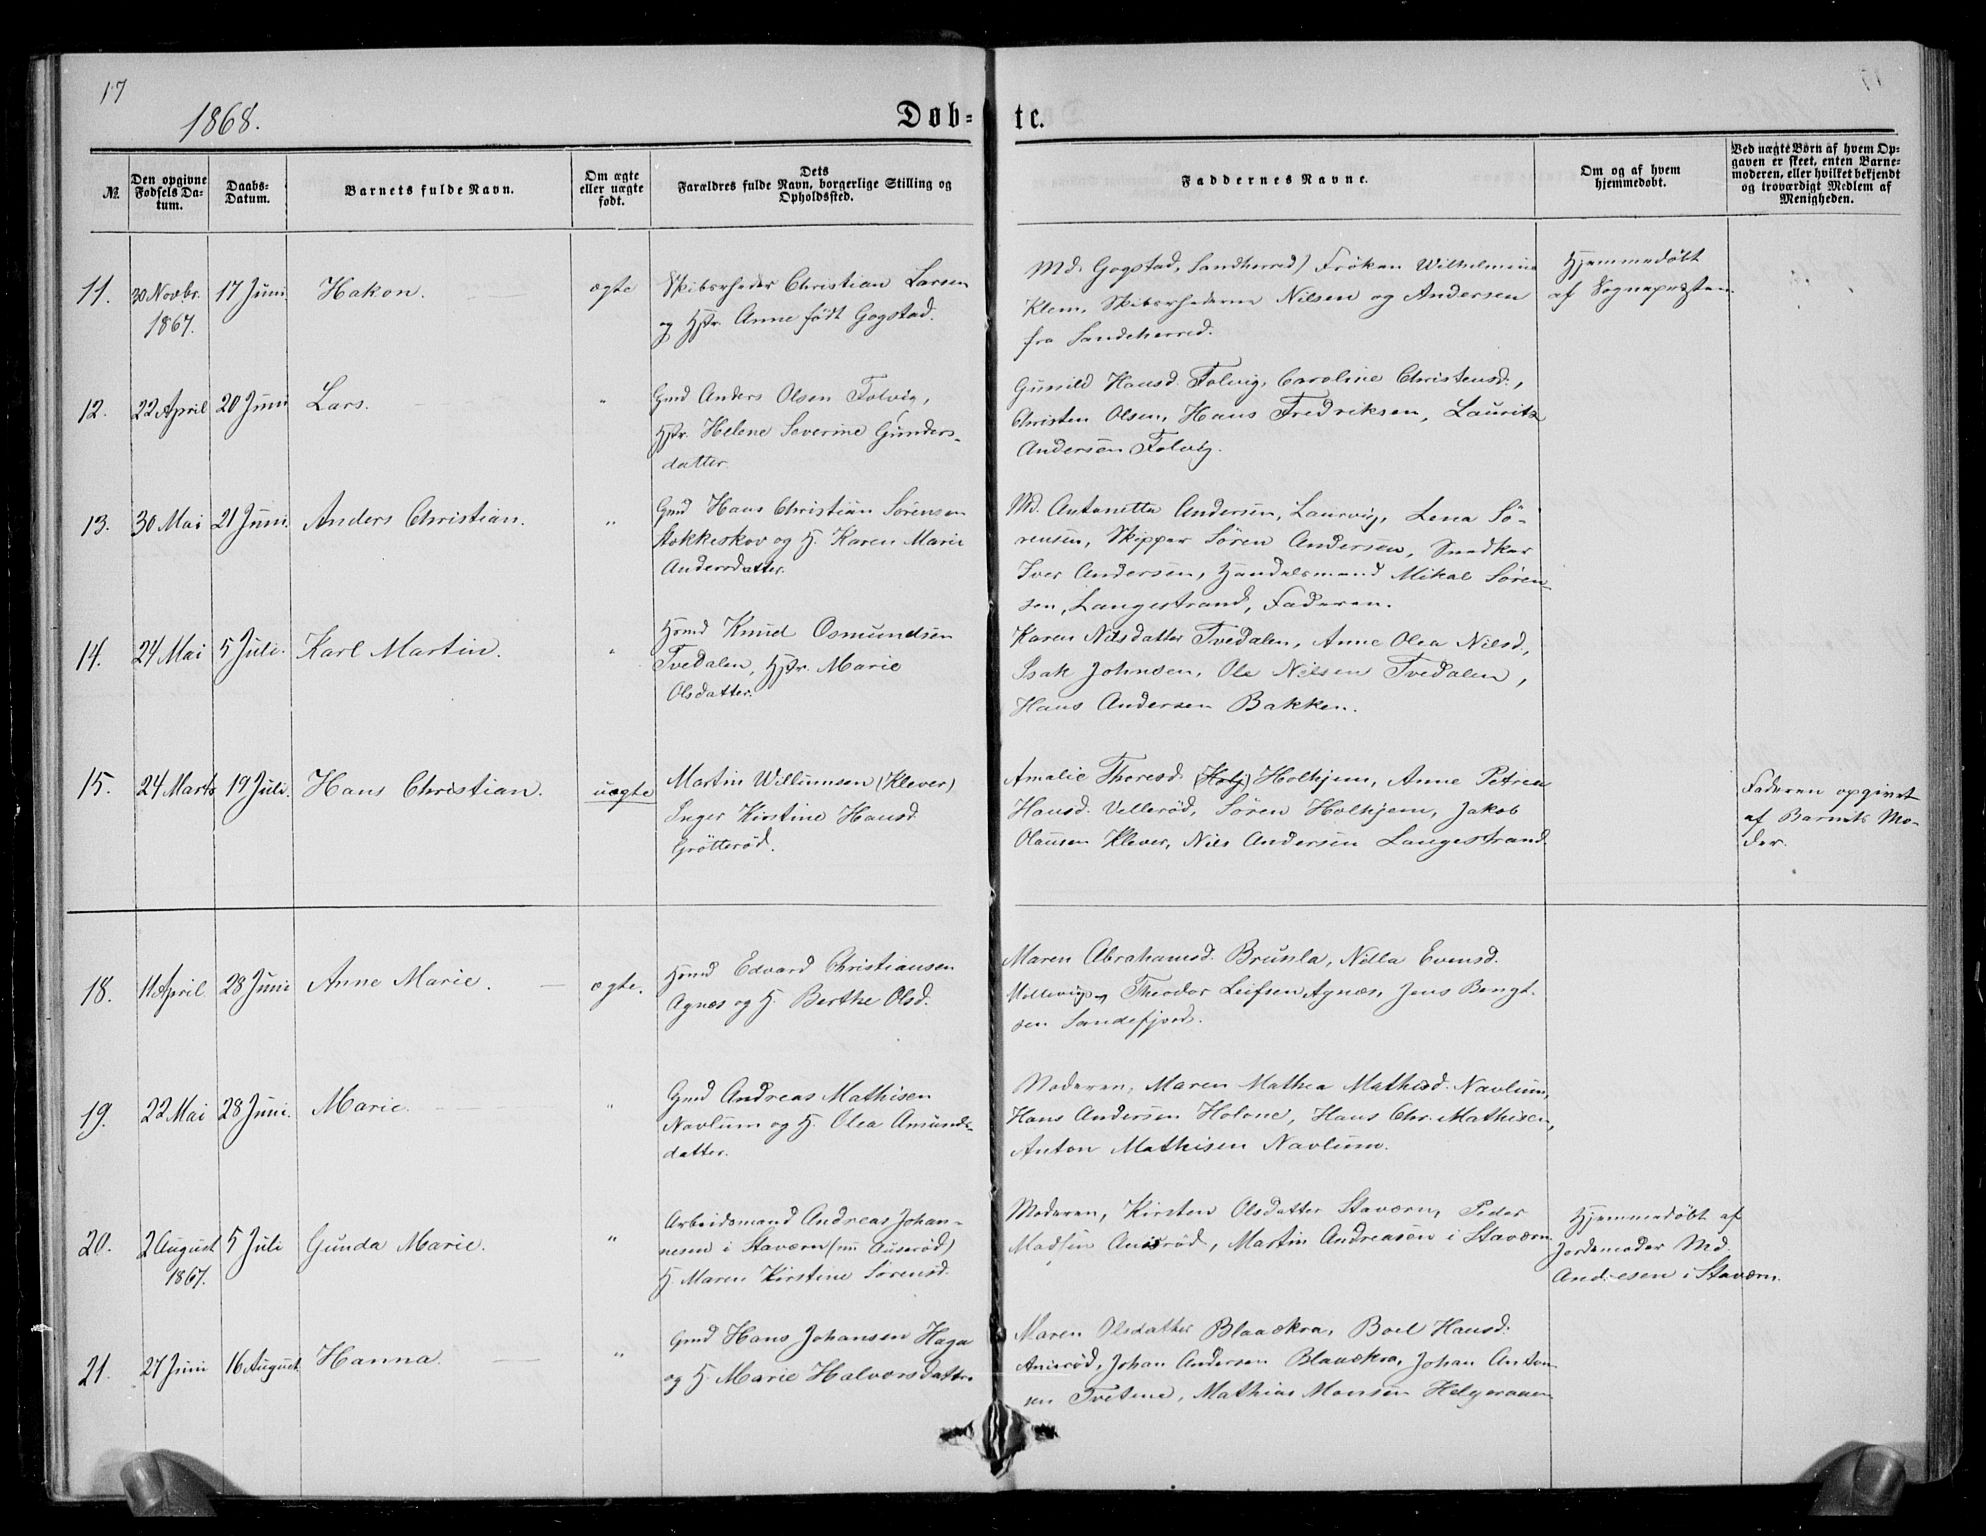 17
1868.
Døb-
te.
№.
Den opgivne
Fødsels Da-
tum.
Daabs-
Datum.
Barnets fulde Navn.
Om ægte
eller uægte
født.
Dets
Farældres fulde Navn, borgerlige Stilling og
Opholdssted.
Faddernes Navne.
Om og af hvem
hjemmedøbt.
Ved uægte Børn af hvem Op-
gaven er skeet, enten Barne-
moderen, eller hvilket bekjendt
og troværdigt Medlem af
Menigheden.
11.
30 Novbr.
1867.
17 Juni
Hakon.
ægte
Skibsrheder Christian Larsen
og Hstr. Anne født Gogstad.
Md. Gogstad, Sandherred) Frøken Wilhelmine
Klem, Skibsrhederne Nilsen og Andersen
fra Sandeherred.
Hjemmedøbt
af Sognepræsten.
12.
22 April
20 Juni
Lars.
"
Gmd Anders Olsen Tolvig,
Hstr. Helene Severine Gunders-
datter.
Gunild Hansd. Folvig, Caroline Christensd.,
Christen Olsen, Hans Fredriksen, Lauritz
Andersen Folvig.
13.
30 Mai
21 Juni.
Anders Christian.
"
Gmd Hans Christian Sørensen
Stokkeskov og H. Karen Marie
Andersdatter.
Md. Antonette Andersen, Laurvig, Lena Sø-
rensen, Skipper Søren Andersen, Snedker
Iver Andersen, Handelsmand Mikal Søren-
sen, Langestrand, Faderen.
14.
24 Mai
5 Juli.
Karl Martin.
"
Hsmd Knud Osmundsen
Tvedalen, Hstr. Marie
Olsdatter.
Karen Nilsdatter Tvedalen, Anne Olea Nilsd,
Isak Johnsen, Ole Nilsen Tvedalen,
Hans Andersen Bakken.
15.
24 Marts
19 Juli.
Hans Christian.
uægte
Martin Willumsen (Klever)
Inger Kirstine Hansd.
Grøtterød.
Amalie Thoresd. (Holj) Holhjem, Anne Petrea
Hansd. Vellerød, Søren Holhjem, Jakob
Olausen Klever, Nils Andersen Langestrand.
Faderen opgivet
af Barnets Mo-
der.
18.
11 April
28 Juni
Anne Marie.
ægte.
Hsmd Edvard Christiansen
Agnæs og H. Berthe Olsd.
Maren Abrahamsd. Brunla, Nilla Evensd.
Theodor Leifsen Agnæs, Jens Bengt-
sen Sandefjord.
19.
22 Mai
28 Juni.
Marie.
"
Gmd Andreas Mathisen
Navlum og H. Olea Amunds-
datter.
Moderen, Maren Mathea Mathisd. Navlum,
Hans Andersen Holone, Hans Chr. Mathisen,
Anton Mathisen Navlum.
20.
2 August
1867.
5 Juli
Gunda Marie.
"
Arbeidsmand Andreas Johan-
nesen i Staværn (nu Auserød)
H. Maren Kirstine Sørensd.
Moderen, Kirsten Olsdatter Staværn, Peder
Madsen Anisrød, Martin Andreasen i Staværn
Hjemmedøbt af
Jordemoder Md.
Andresen i Staværn.
21.
27 Juni
16 August
Hanna.
"
Gmd Hans Johansen Haga
og H. Marie Halvorsdatter
Maren Olsdatter Blaaækra, Boel Hansd.
Anisrød, Johan Andersen Blaaækra, Johan Anton-
sen Tvetene, Mathias Monsen Helgeraaen